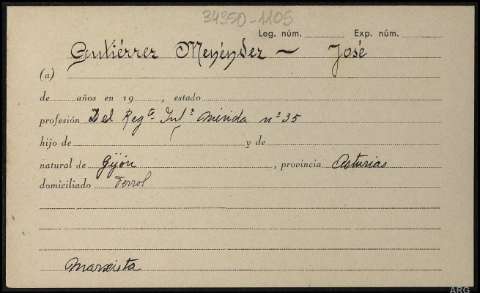 34350-1105
Leg. núm. Exp. núm.
Gutiérrez Menéndez - José
(a)
de años en 19 , estado
profesión Del Regtº Infª Mérida nº 35
hijo de y de
natural de Gijón , provincia Asturias
domiciliado Ferrol
Marxista
ARG